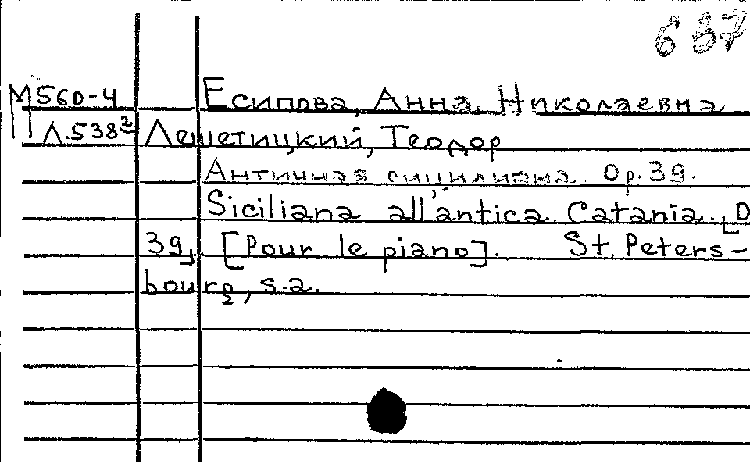 637
М560-4 Есипова, Анна Николаевна
Л.538² Лешетицкий, Теодор
Античная сицилиана. Op.39.
Siciliana all'antica Catania.
39, [Pour le piano]. St. Peters-
bourg, s.a.